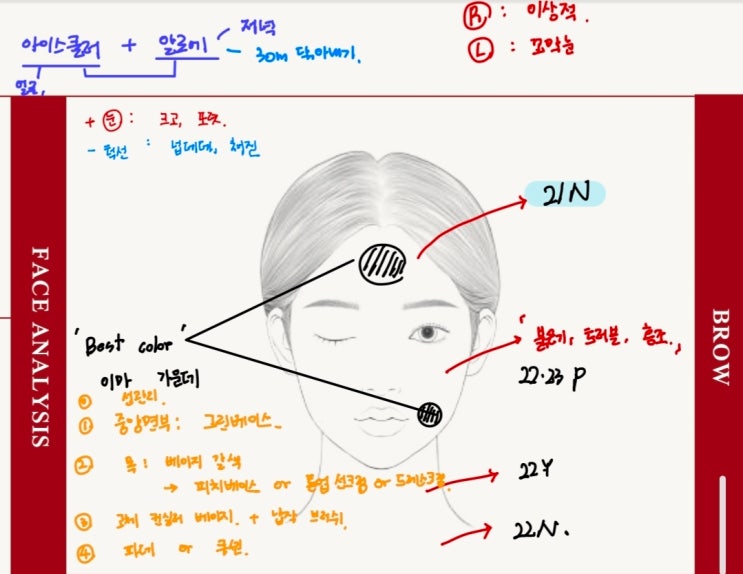 아이스쿨러 + 알로에 저녁
- 30m 닦아내기.
얼굴,
Ⓡ : 이상적.
Ⓛ : 꼬막눈
+ 눈 : 크고, 또렷.
- 턱선 : 넙데데, 처진
FACE ANALYSIS
BROW
21N
'Best color'
이마 가운데
볼온기, 트러블, 홍조.,
22.23 P
⓪ 선관리
① 중앙면부: 그린베이스
② 목: 베이지 갈색
→ 피치베이스 or 톤업 선크림 or 드라마크림.
22Y
③ 고체 컨실러 베이지. + 납작 브러쉬.
22N.
④ 파데 or 쿠션.